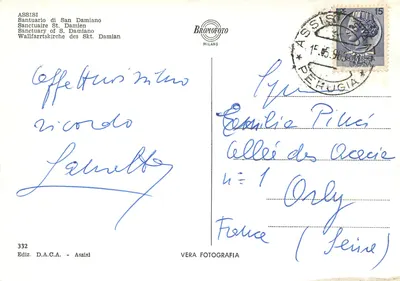 ASSISI
Santuario di San Damiano
Sanctuaire St. Damien
Sanctuary of S. Damiano
Wallfahrtskirche des Skt. Damian
BROMOFOTO
MILANO
ASSISI
PERUGIA
affettuosissimo
ricordo
Emilia
Allée des Acacia
n° 1 Orly
France (Seine)
332
Ediz. D.A.C.A. - Assisi
VERA FOTOGRAFIA